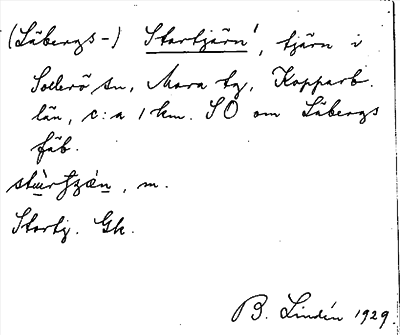 (Läbergs-) Stortjärn', tjärn i
Sollerö sn, Mora tg, Kopparb.
län, c:a 1 km. SO om Läbergs
fäb.
m.
Stortj. Gk.
B. Lindén 1929.